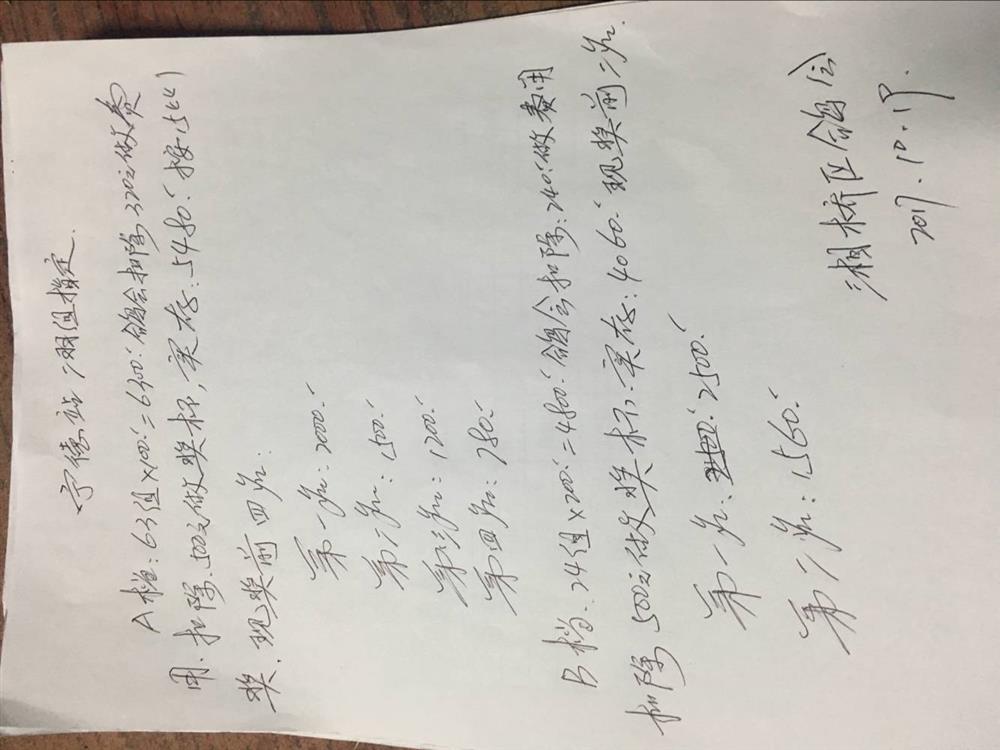 宁德站2羽组指定.
A档:63组×100.=6300.鸽会扣除320元做费
用.扣除500元做奖杯,实存:5480.按
奖.现奖前四名:
第一名:2000.
第二名:1500.
第三名:1200.
第四名:780.
B档:24组×200.=4800.鸽会扣除:240.做费用
扣除500元做奖杯,实存:4060.现奖前二名
第一名:2500.
第二名:1560.
湘桥区鸽会
2017.10.17.